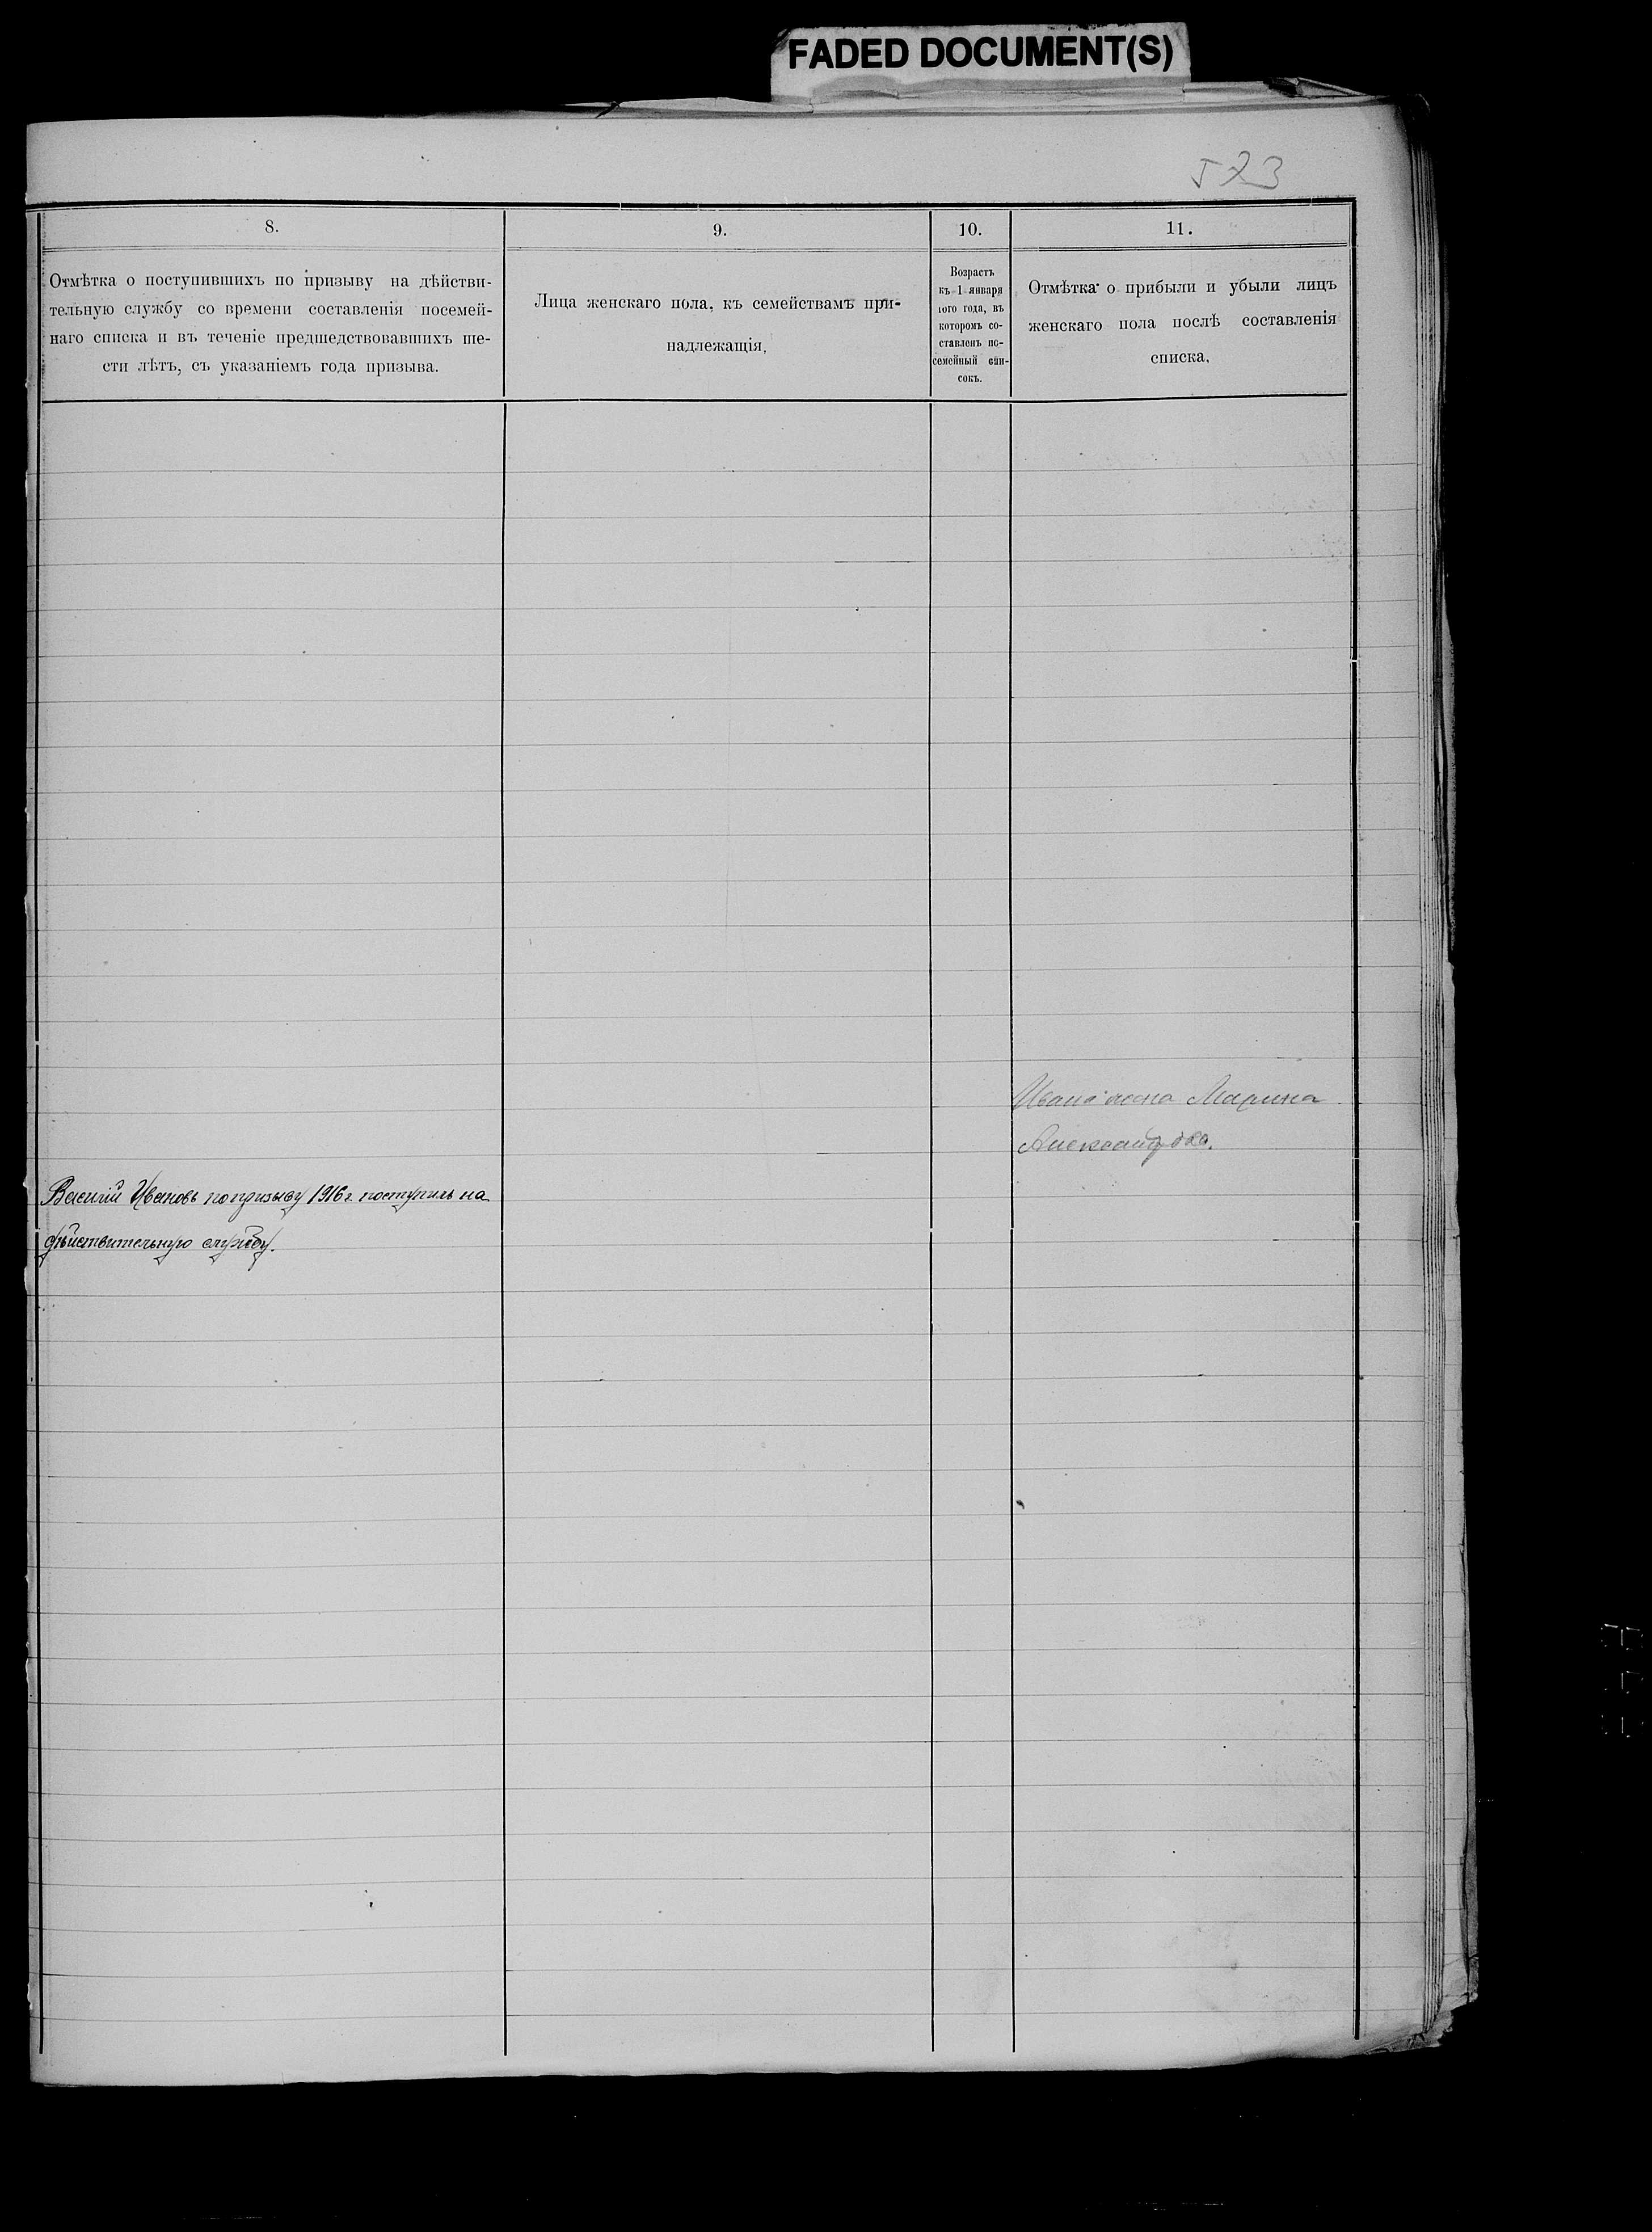 FADED DOCUMENT(S)
523
8.
9.
10.
11.
Отмѣтка о поступившихъ по призыву на дѣйстви-
тельную службу со времени составленія посемей-
наго списка и въ теченіе предшедствовавшихъ ше-
сти лѣтъ, съ указаніемъ года призыва.
Лица женскаго пола, къ семействамъ при-
надлежащія,
Возрастъ
къ 1 января
того года, въ
которомъ со-
ставленъ по-
семейный спи-
сокъ.
Отмѣтка о прибыли и убыли лицъ
женскаго пола послѣ составленія
списка,
Ивана жена Марина
Василій Ивановъ по призыву 1916 г. поступилъ на
дѣйствительную службу.